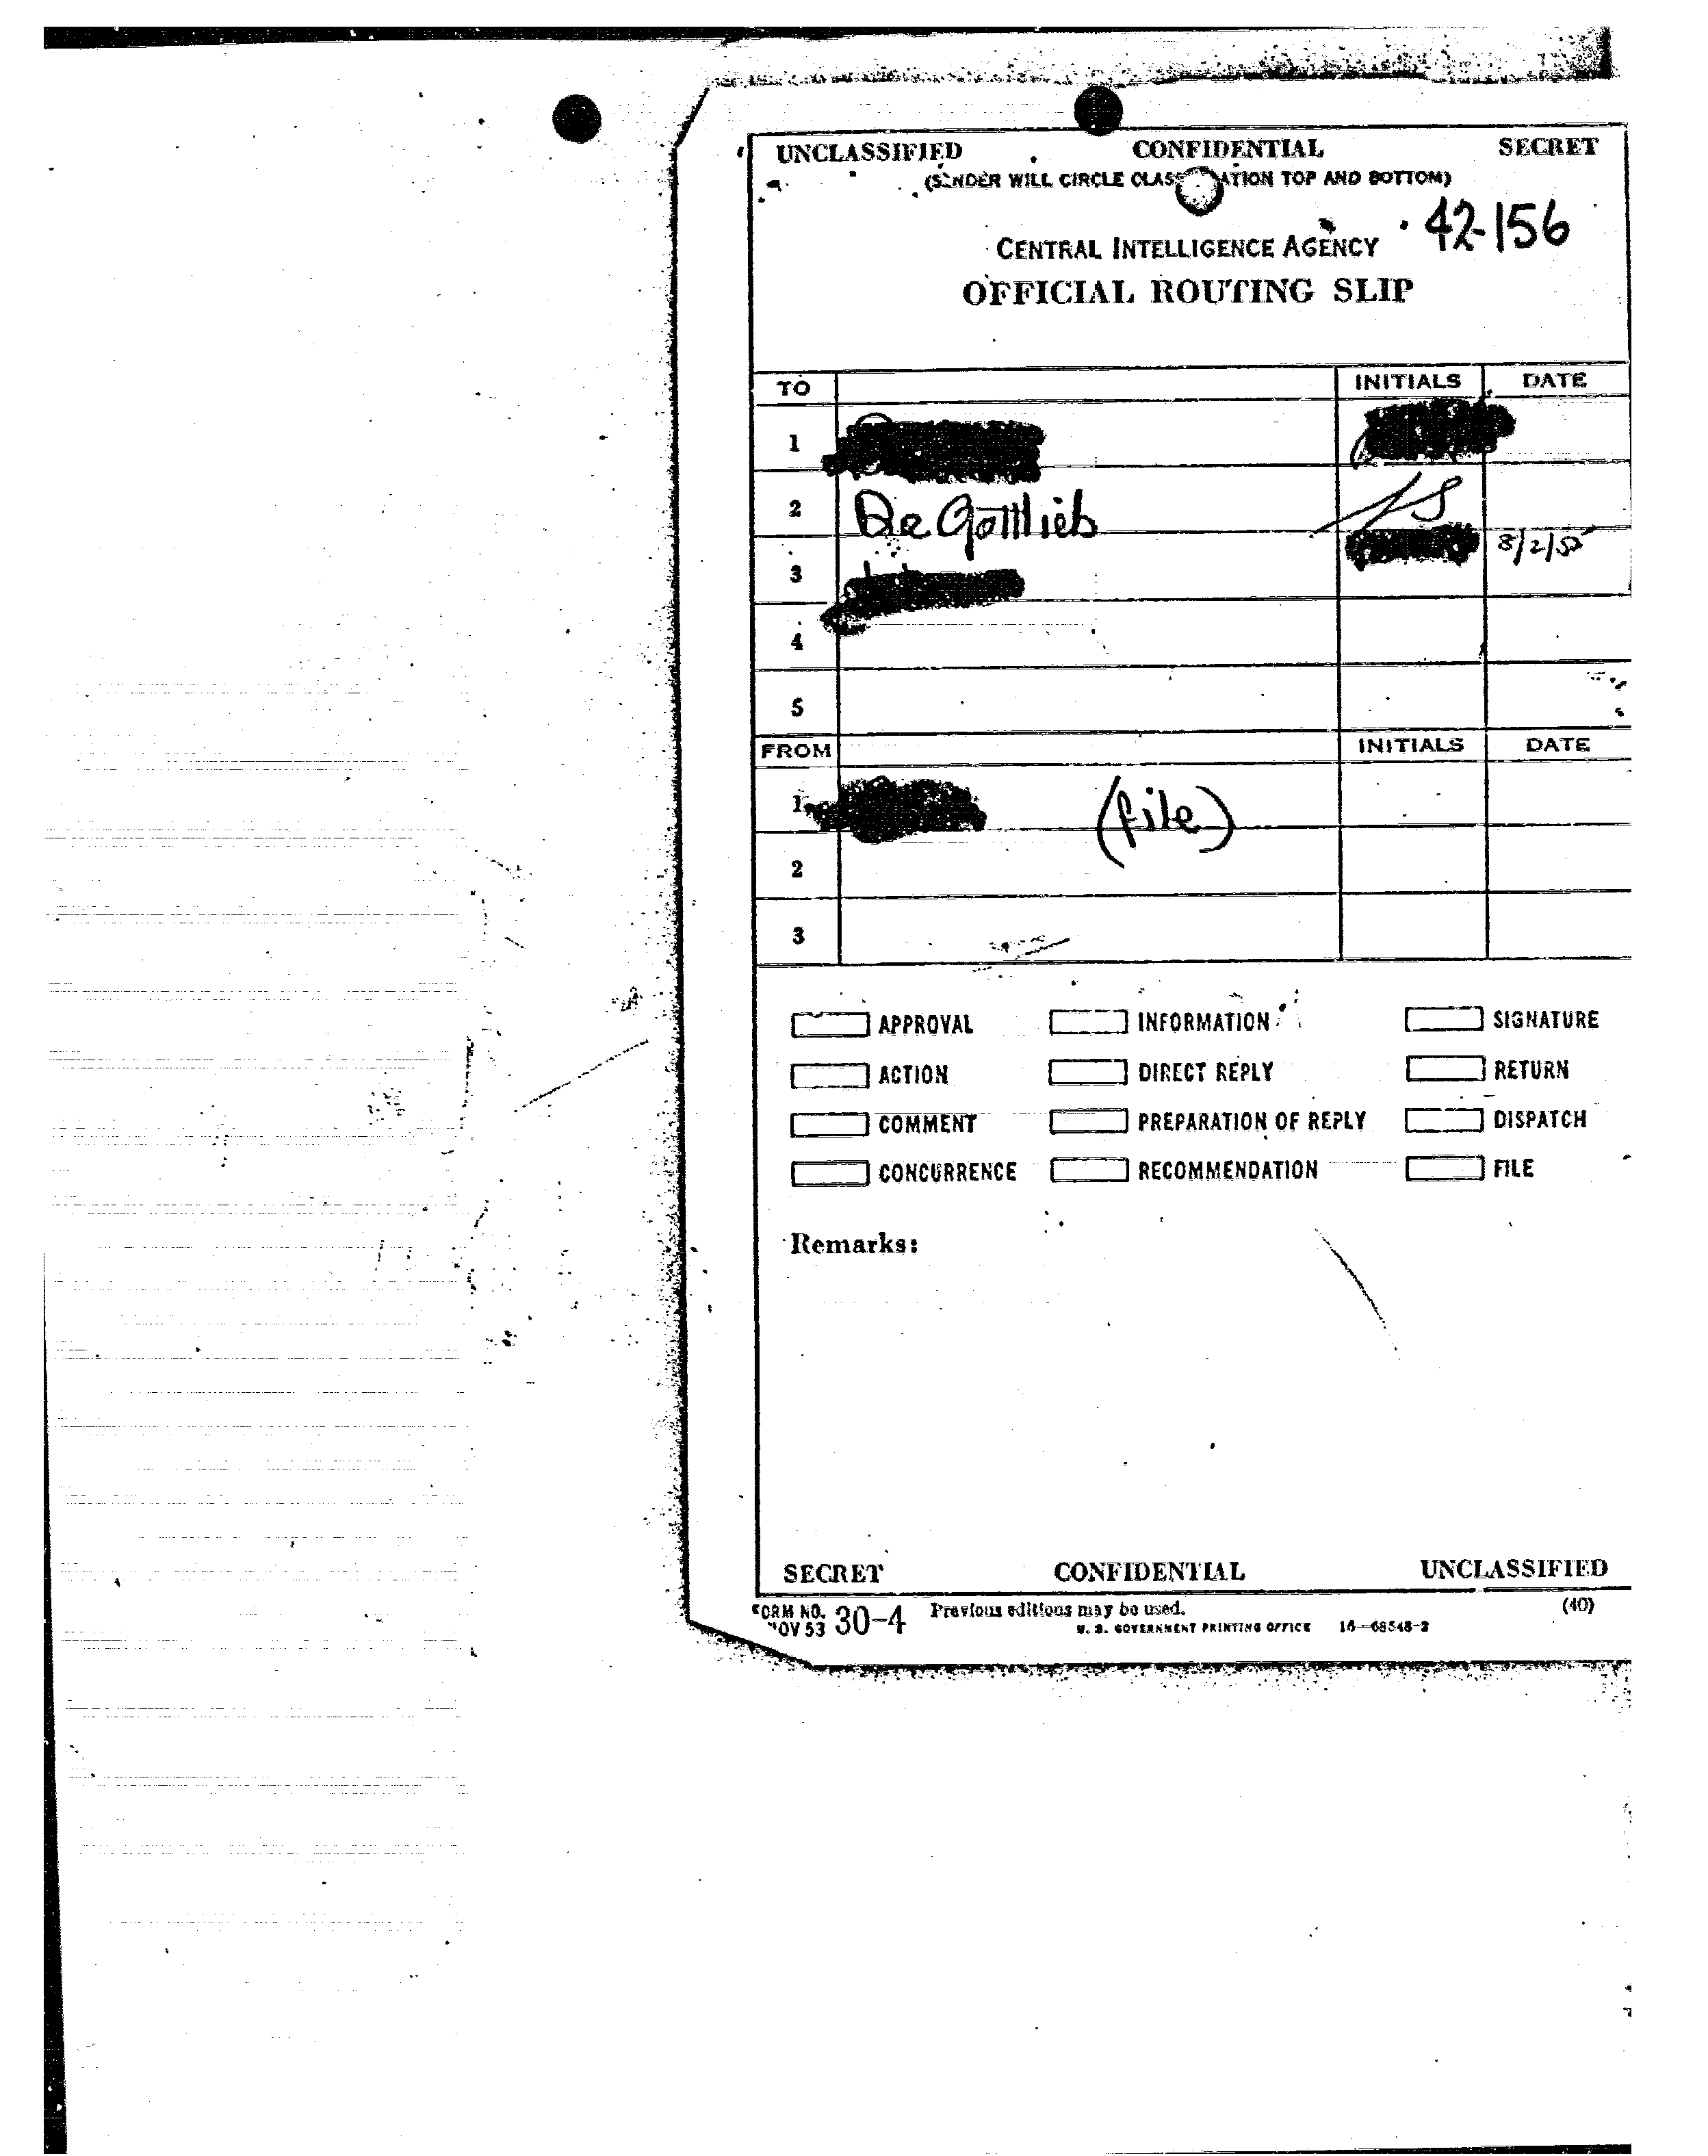 UNCLASSIFIED CONFIDENTIAL SECRET
(SENDER WILL CIRCLE CLAS ATION TOP AND BOTTOM)
42-156
CENTRAL INTELLIGENCE AGENCY
OFFICIAL ROUTING SLIP
TO INITIALS DATE
1
2 Dr Gottlieb
3 8/2/5
4
5
FROM INITIALS DATE
1 (file)
2
3
APPROVAL INFORMATION SIGNATURE
ACTION DIRECT REPLY RETURN
COMMENT PREPARATION OF REPLY DISPATCH
CONCURRENCE RECOMMENDATION FILE
Remarks:
SECRET CONFIDENTIAL UNCLASSIFIED
FORM NO. 30-4 Previous editions may be used. (40)
NOV 53 U. S. GOVERNMENT PRINTING OFFICE 16—68548-2